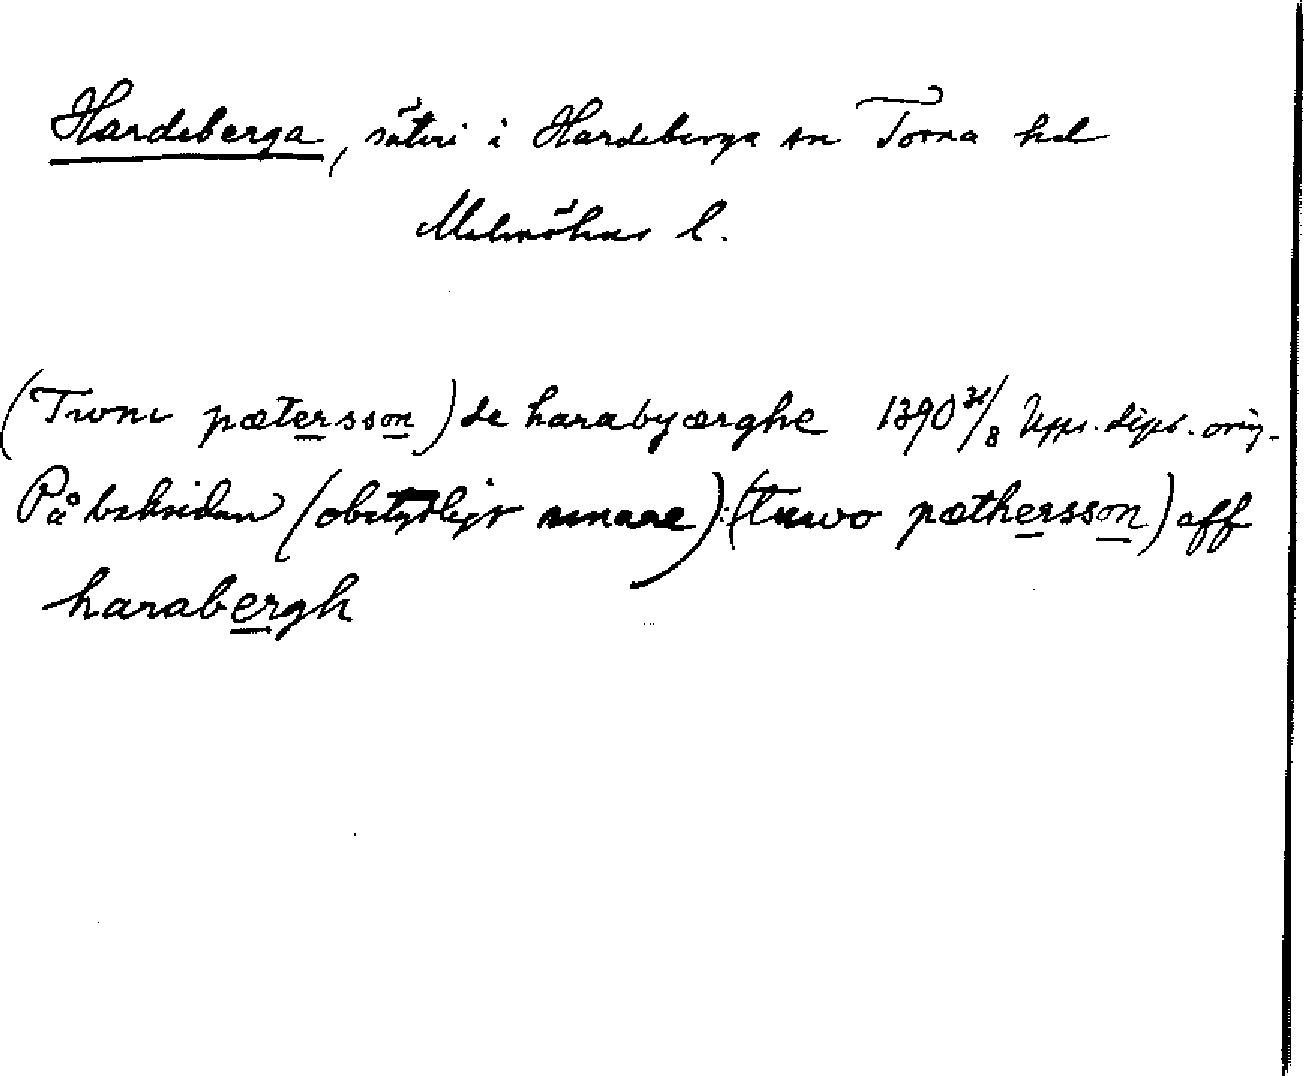 Hardeberga, säteri i Hardeberga sn Torna hd
Malmöhus l.
(Twni pætersson) de harabyærghe 1390 21/8 Upps. dipl. orig.
På baksidan (obetydligt senare): (tuwo pæthersson) aff
harabergh